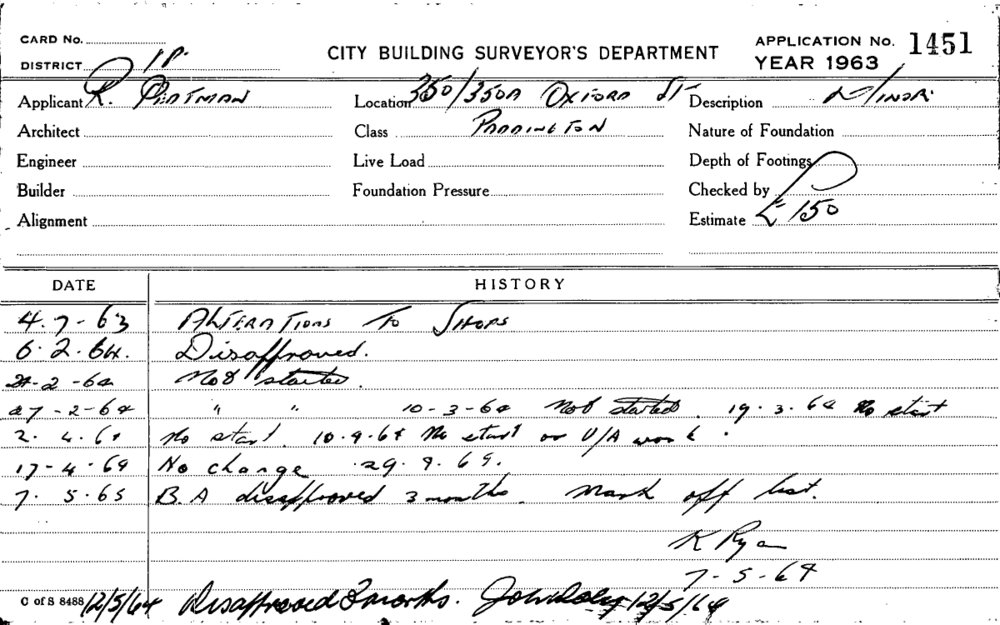 CARD No.
DISTRICT
CITY BUILDING SURVEYOR'S DEPARTMENT
APPLICATION No. 1451
YEAR 1963
Applicant R.
Location 350/350A OXFORD ST
Description MINOR.
Architect
Class PADDINGTON
Nature of Foundation
Engineer
Live Load
Depth of Footings
Builder
Foundation Pressure
Checked by
Alignment
Estimate £150
DATE HISTORY
4.7-63 ALTERATIONS TO SHOPS
6.2.64. Disapproved.
-2-64 Not started.
27-2-64 " " 10-3-64 Not started. 19.3.64 No start
2.4.64 No start. 10.4.64 No start or U/A work.
17-4-64 No change 29.4.64.
7.5.65 B.A disapproved 3 months. Mark off list.
K Ryan
7-5-64
C of S 8488 12/5/64 Disapproved 3 months. 12/5/64